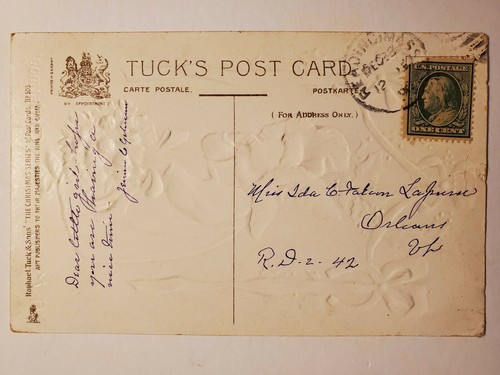 TUCK'S POST CARD
CARTE POSTALE.
POSTKARTE.
BY APPOINTMENT
(FOR ADDRESS ONLY.)
DEC 22
12
U.S. POSTAGE
ONE CENT
Raphael Tuck & Sons' "THE CHRISTMAS SERIES" of Post Cards
ART PUBLISHERS TO THEIR MAJESTIES THE KING AND QUEEN.
Dear little girl. hope
you are having a
nice time.
Miss Ida
Orleans
Vt
R.D-2-42